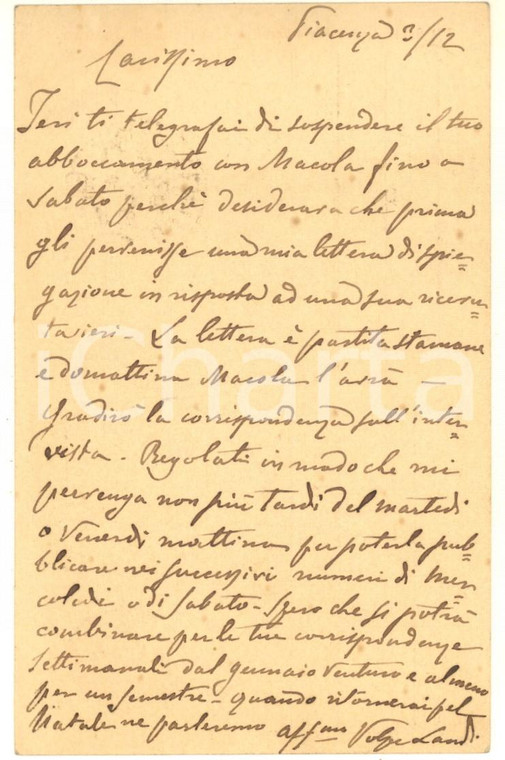 Piacenza 3/12
Carissimo
Ieri ti telegrafai di sospendere il tuo
abboccamento con Macola fino a
sabato perchè desiderava che prima
gli pervenisse una mia lettera di spie=
gazione in risposta ad una sua ricevu=
ta ieri - La lettera è partita stamane
e domattina Macola l'avrà -
Gradirò la corrispondenza sull'inter=
vista - Regolati in modo che mi
pervenga non più tardi del martedì
o Venerdì mattina per poterla pub=
blicare nei successivi numeri di Mer=
coledì o di Sabato - Spero che si potrà
combinare per le tue corrispondenze
settimanali dal gennaio venturo e almeno
per un semestre - quando ritornerai pel
Natale ne parleremo affmo Volpe Landi
iCharta